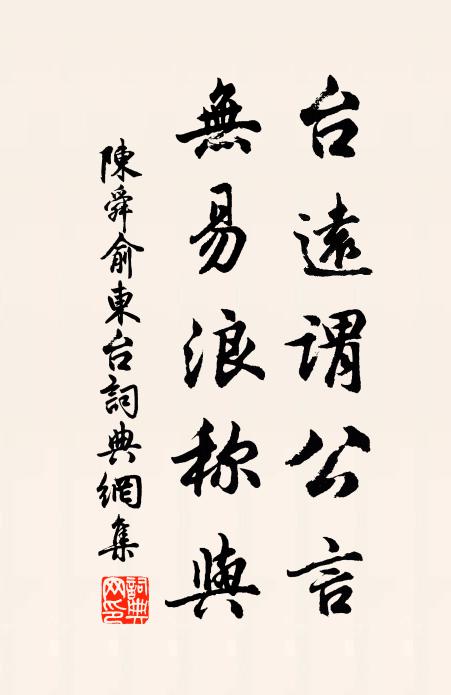 台遠謂公言
無易浪称與
陳舜俞東台詞典網集
詞典
网印